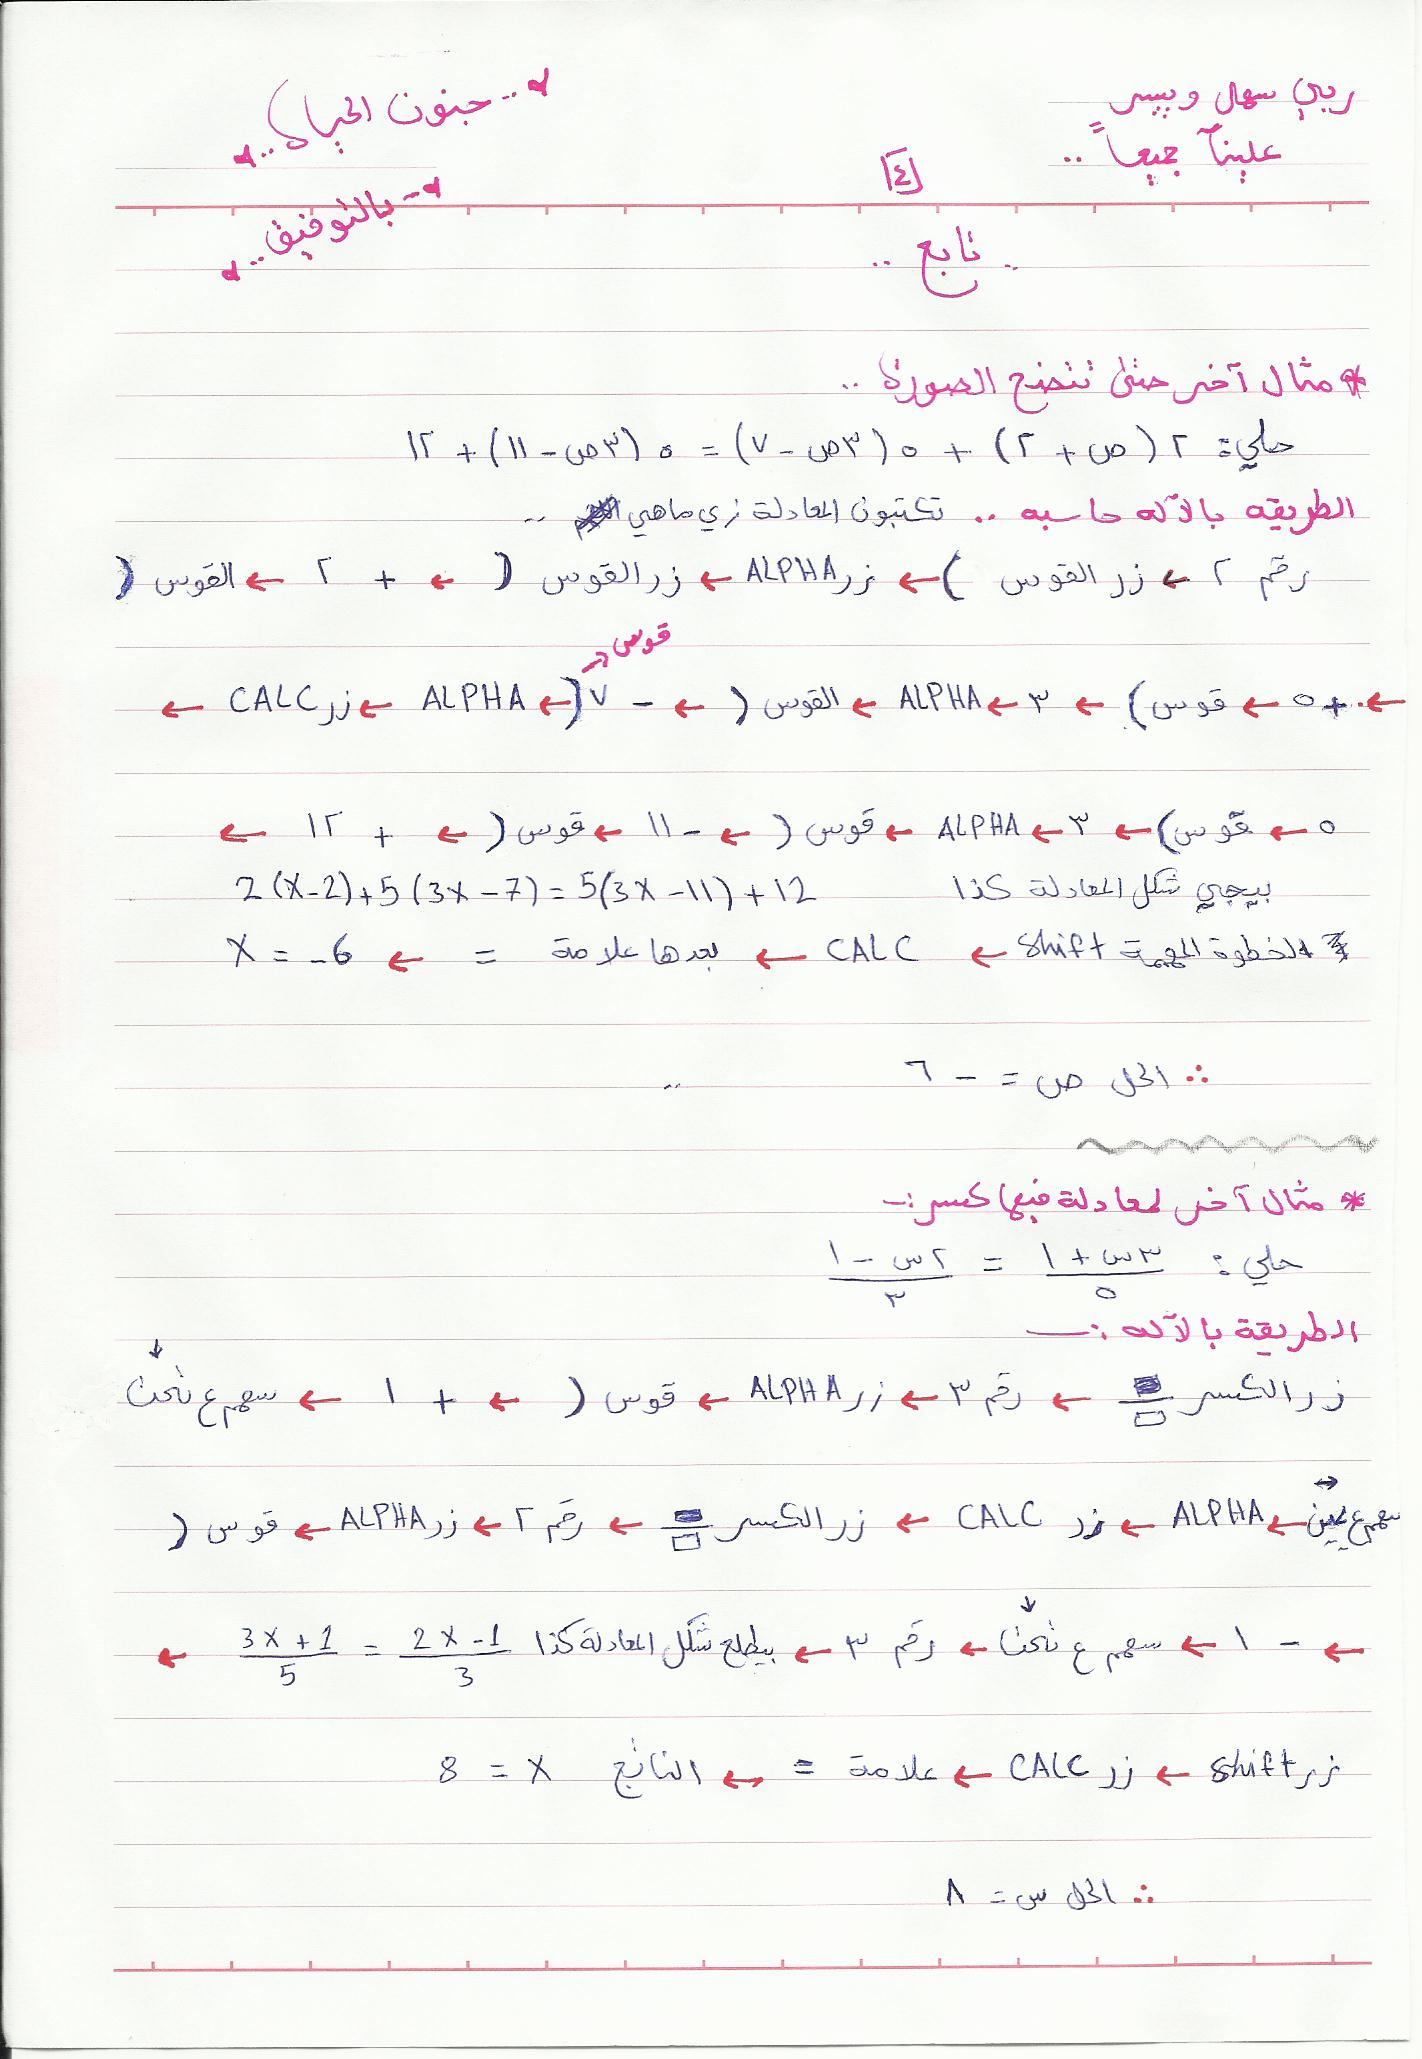 ربي سهل ويسر
علينآ جميعاً ..
جنون الحياه ..
[٤]
بالتوفيق ..
.. تابع ..
* مثال آخر حتى تتضح الصورة ..
حلي: ٢ (ص + ٢) + ٥ (٣ص - ٧) = ٥ (٣ص - ١١) + ١٢
الطريقه بالآله حاسبه .. تكتبون المعادلة زي ماهي ..
رقم ٢ ← زر القوس ) ← زر ALPHA ← زر القوس ( ← + ٢ ← القوس (
قوس
← + ٥ ← قوس ) ← ٣ ← ALPHA ← القوس ( ← - ٧ ( ← ALPHA ← زر CALC ←
٥ ← قوس ) ← ٣ ← ALPHA ← قوس ( ← - ١١ ← قوس ( ← + ١٢ ←
بيجي شكل المعادلة كذا 2(X-2)+5(3X-7)=5(3X-11)+12
* الخطوة المهمة shift ← CALC ← بعدها علامة = ← X = -6
∴ الحل ص = - ٦ ..
* مثال آخر لمعادلة فيها كسر :-
حلي : ٣س + ١ / ٥ = ٢س - ١ / ٣
الطريقة بالآله :-
زر الكسر ← رقم ٣ ← زر ALPHA ← قوس ( ← + ١ ← سهم ع تحت ↓
سهم ع يمين → ← ALPHA ← زر CALC ← زر الكسر ← رقم ٢ ← زر ALPHA ← قوس (
← - ١ ← سهم ع تحت ↓ ← رقم ٣ ← بيطلع شكل المعادلة كذا 3X+1 / 5 = 2X-1 / 3 ←
زر shift ← زر CALC ← علامة = ← الناتج X = 8
∴ الحل س = ٨